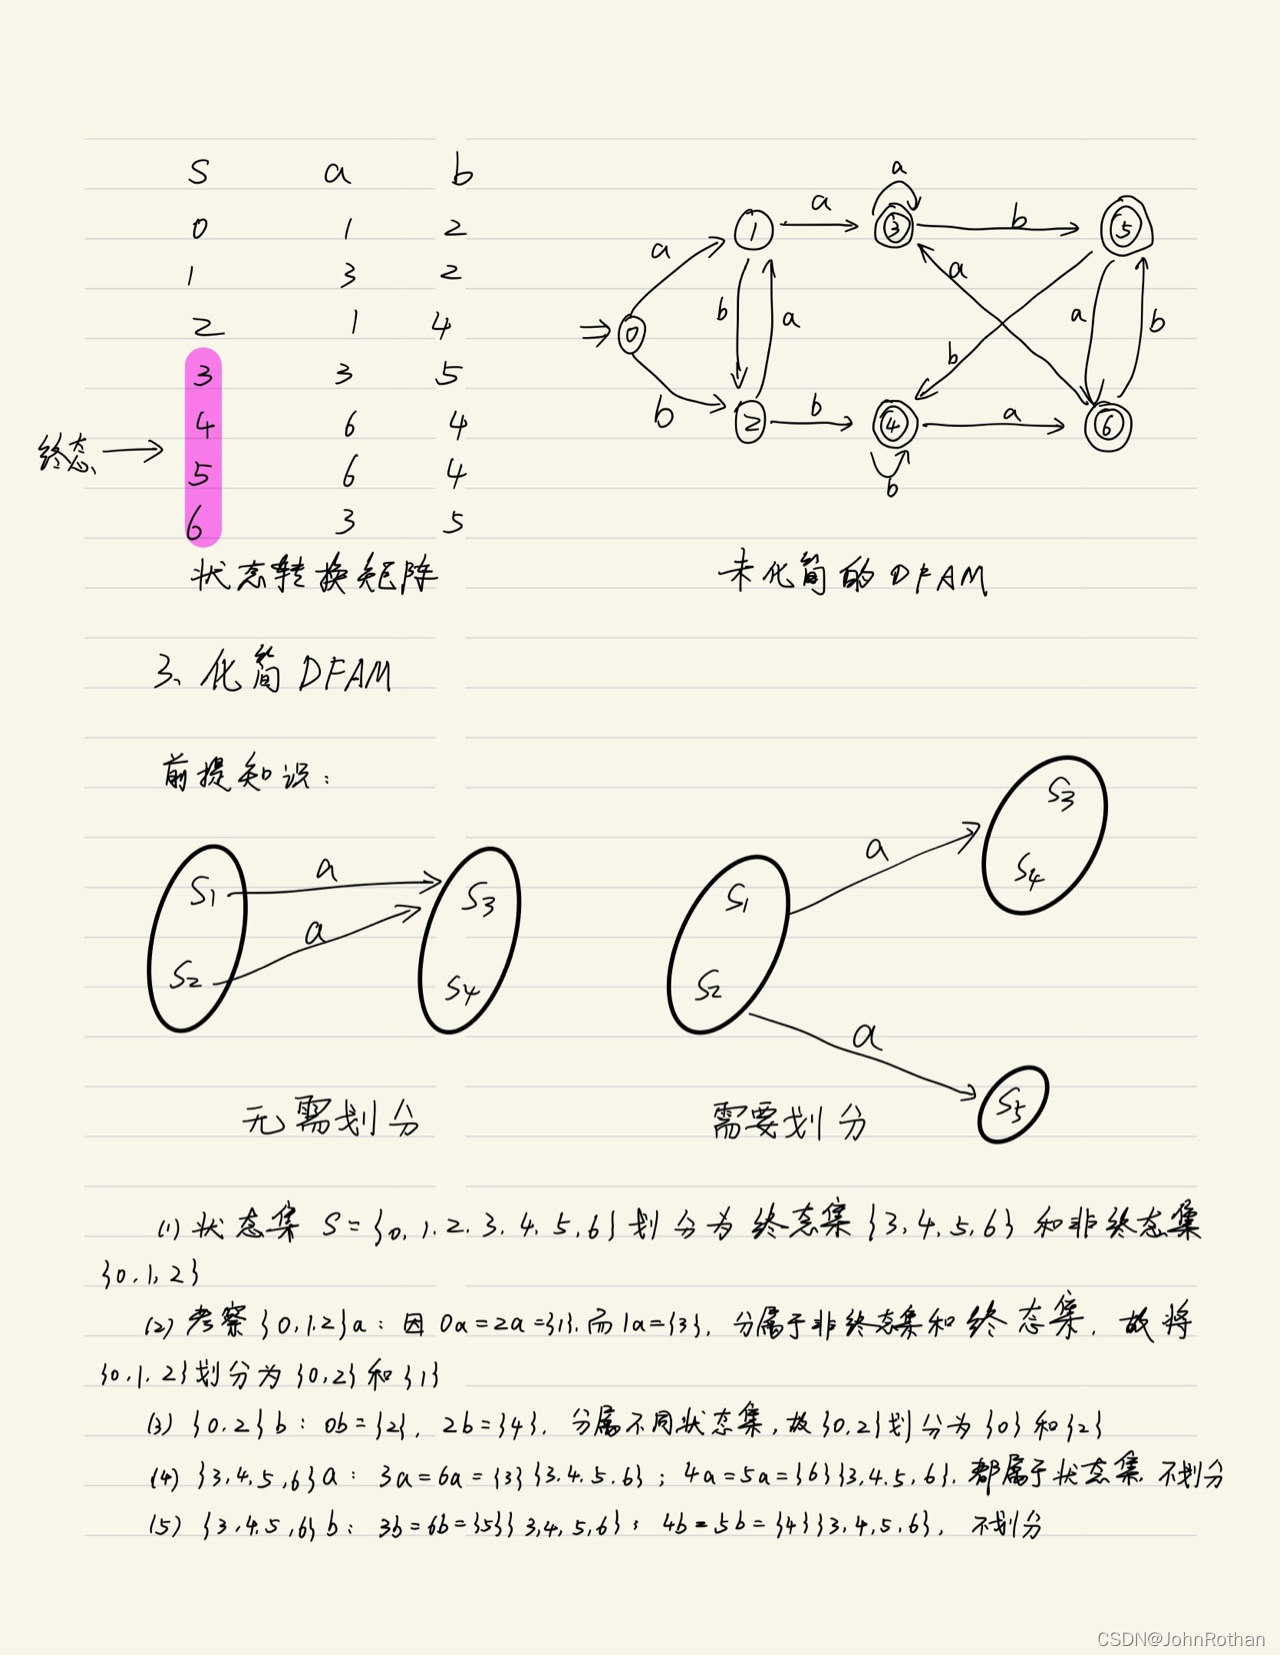 S a b
0 1 2
1 3 2
2 1 4
3 3 5
终态 4 6 4
5 6 4
6 3 5
状态转换矩阵
a
1 a 3 b 5
a b a a a b
0
b b
2 b 4 a 6
b
未化简的DFAM
3、化简DFAM
前提知识：
S1 a S3
S2 a S4
无需划分
S1 a S3
S4
S2 a S5
需要划分
(1) 状态集 S={0,1,2,3,4,5,6}划分为终态集{3,4,5,6}和非终态集
{0,1,2}
(2) 考察{0,1,2}a：因0a=2a={1},而1a={3}, 分属于非终态集和终态集，故将
{0,1,2}划分为{0,2}和{1}
(3) {0,2}b：0b={2}, 2b={4}, 分属不同状态集，故{0,2}划分为{0}和{2}
(4) {3,4,5,6}a：3a=6a={3}{3,4,5,6}；4a=5a={6}{3,4,5,6}, 都属于状态集，不划分
(5) {3,4,5,6}b：3b=6b={5}{3,4,5,6}；4b=5b={4}{3,4,5,6}, 不划分
CSDN@JohnRothan